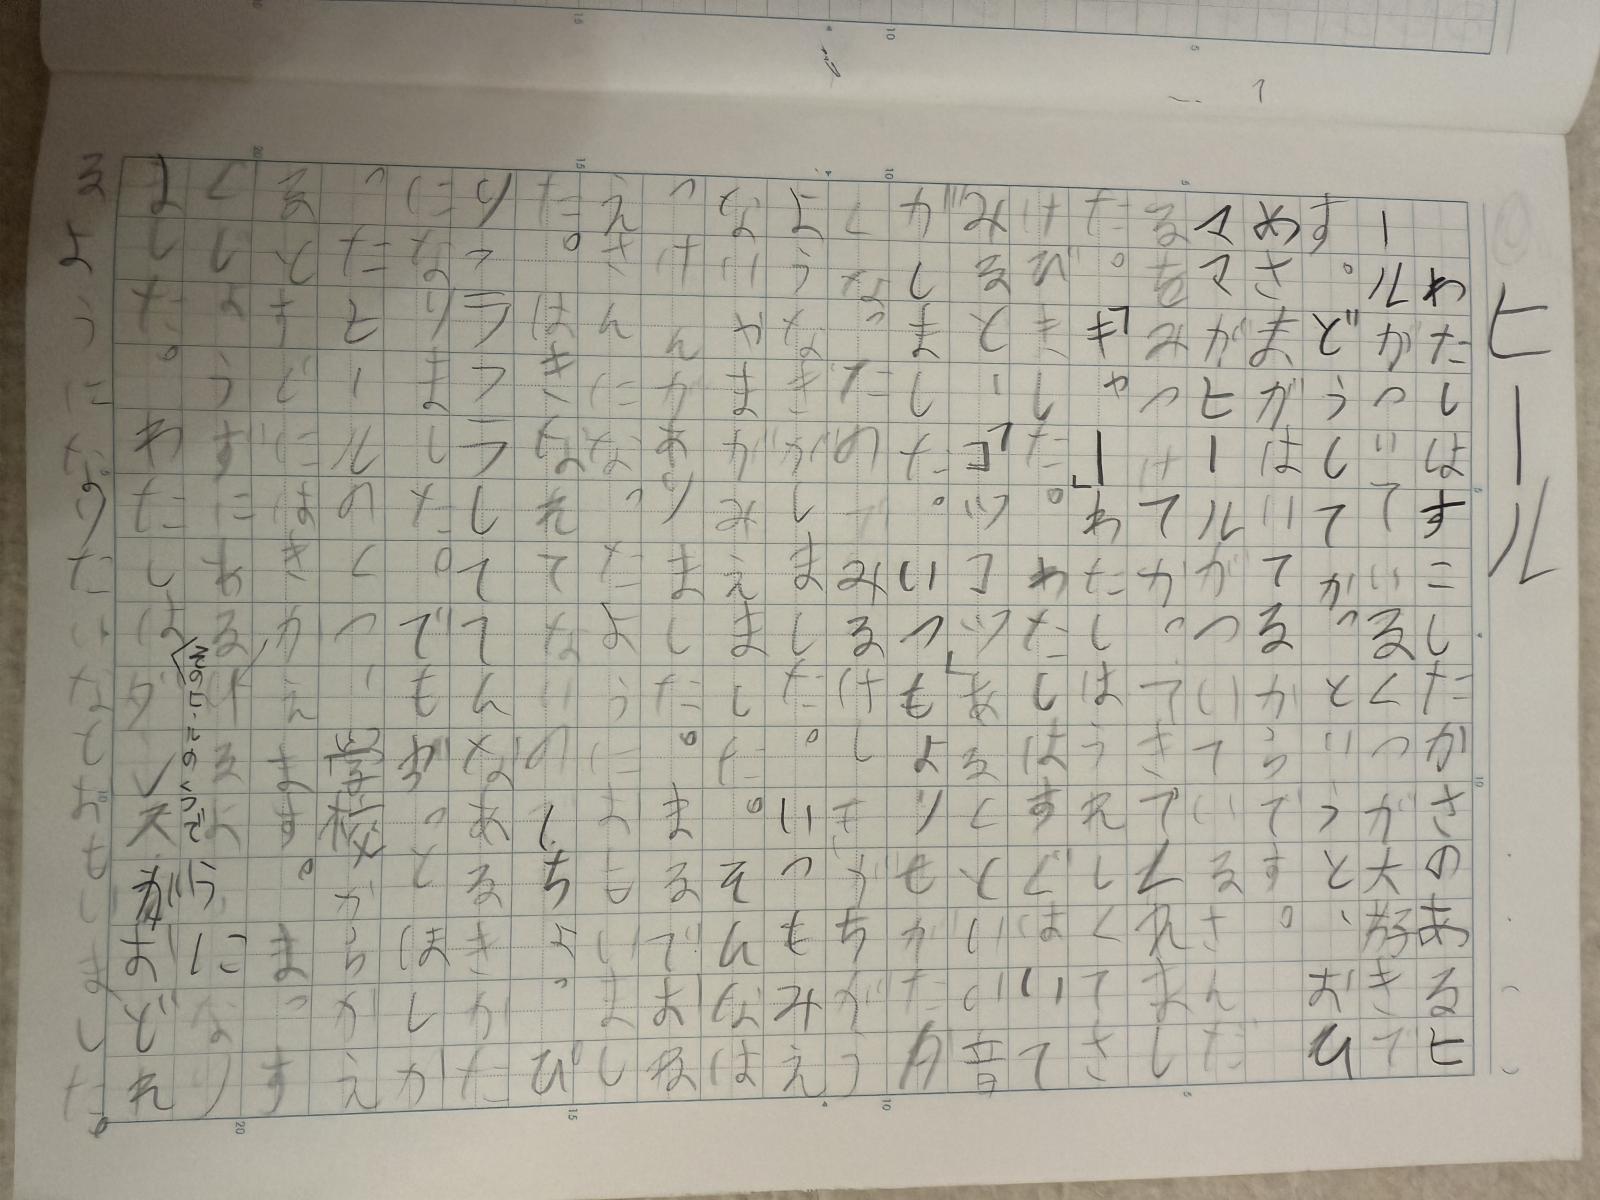 ヒール
わたしはすこしたかさのあるヒ
ールがついているくつが大好きで
す。どうしてか、というと、おひ
めさまがはいてるからです。
ママがヒールがついているさんだ
るをみつけてかってきてくれまし
た。「きゃー」わたしはうれしくてさ
けびました。わたしはすぐはいて
みると、「コツコツ」あるくといい音
がしました。いつもよりもせがたか
くなった みるけしきがちがう
ようなきがしました。いつもみえ
ないやまがみえました。そんなは
っけんがありました。まるでおね
えさんになったように
だ。はきなれてないので、ちょっぴ
りふらふらしててんなあるきかた
になりました。でも はしが
った、ヒールのくつ、学校からかえ
るとすぐにはきかえます。まっす
ぐ じょうずにあるけるようになり
した。わたしは ダンスがおどれ
るようになりたいなとおもいました。